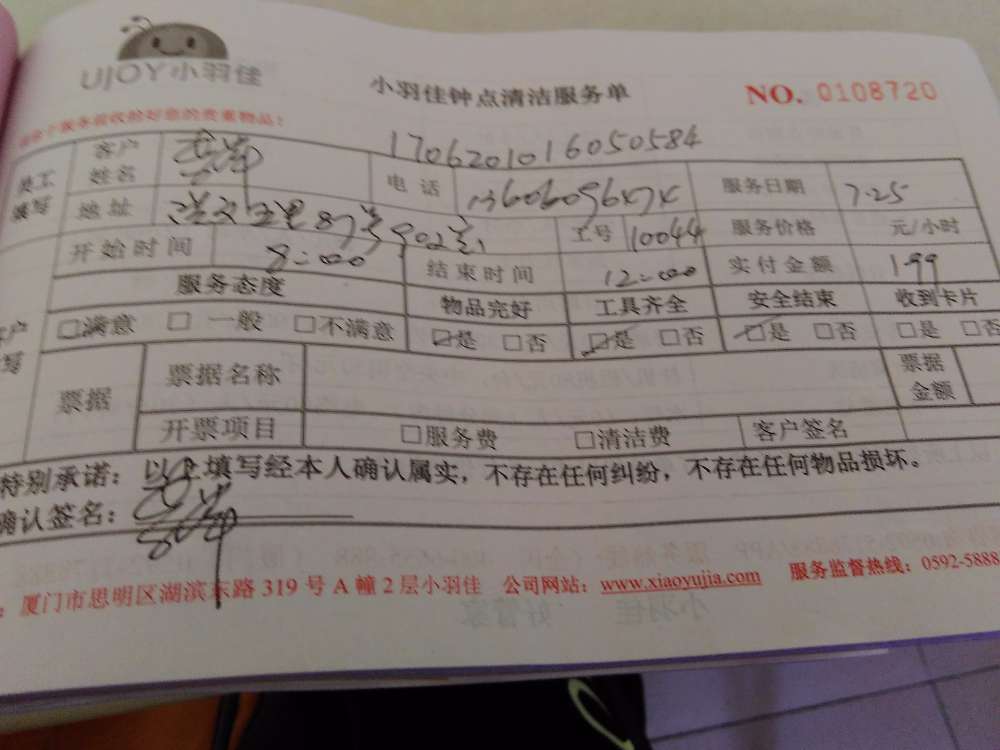 UJOY小羽佳
小羽佳钟点清洁服务单
NO. 0108720
服务验收的好您的贵重物品！
1706201016050584
员工填写
客户姓名
电话
服务日期 7.25
地址 87号902室
工号 10044
服务价格 元/小时
开始时间 8:00
结束时间 12:00
实付金额 199
服务态度 物品完好 工具齐全 安全结束 收到卡片
□满意 □一般 □不满意 □是 □否 □是 □否 □是 □否 □是 □否
票据
票据名称
票据金额
开票项目 □服务费 □清洁费 客户签名
特别承诺：以上填写经本人确认属实，不存在任何纠纷，不存在任何物品损坏。
确认签名：
厦门市思明区湖滨东路 319 号 A 幢 2 层小羽佳 公司网站：www.xiaoyujia.com 服务监督热线：0592-5888